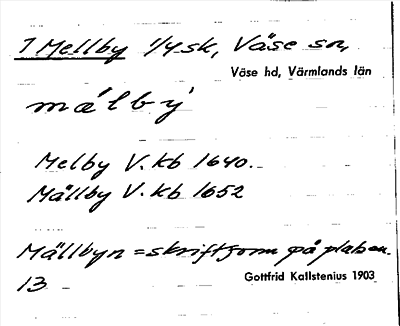 7 Mellby 1/4 sk, Väse sn,
Väse hd, Värmlands län
mälby
Melby V. kb 1640.
Mällby V. kb 1652
Mällbyn = skriftform på platsen.
13
Gottfrid Kallstenius 1903